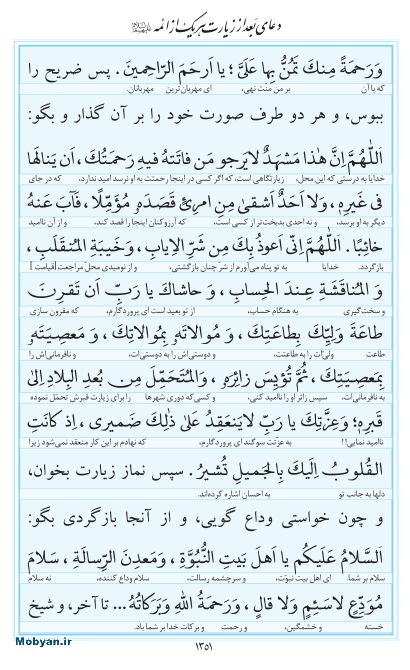 دعای بعد از زیارت هریک از ائمه
وَرَحمَةً مِنكَ تَمُنُّ بِها عَلَیَّ؛ یا اَرحَمَ الرّاحِمینَ. پس ضریح را
که با آن بر من منت نهی، ای مهربان‌ترین مهربانان.
ببوس، و هر دو طرف صورت خود را بر آن گذار و بگو:
اَللّٰهُمَّ اِنَّ هٰذا مَشهَدٌ لا یَرجو مَن فاتَتهُ فیهِ رَحمَتُكَ، اَن یَنالَها
خدایا به درستی که این محل، زیارتگاهی است، که اگر کسی در اینجا رحمتت به او نرسد امید ندارد، که در جای
فی غَیرِهِ، وَلا اَحَدٌ اَشقیٰ مِنِ امرِئٍ قَصَدَهُ مُؤَمِّلًا، فَآبَ عَنهُ
دیگر به او برسد، و نه احدی بدبخت‌تر از کسی است، که آرزوکنان اینجا را قصد کند، و از آن ناامید
خائِبًا. اَللّٰهُمَّ اِنّی اَعوذُ بِكَ مِن شَرِّ الاِیابِ، وَخَیبَةِ المُنقَلَبِ،
بازگردد. خدایا به تو پناه می‌آورم از شر چنان بازگشتی، و از نومیدی محل مراجعت [قیامت]
وَ المُناقَشَةِ عِندَ الحِسابِ، وَ حاشاكَ یا رَبِّ اَن تَقرِنَ
و سخت‌گیری به هنگام حساب، و از تو بعید است ای پروردگارم، که مقرون سازی
طاعَةَ وَلِیِّكَ بِطاعَتِكَ، وَ مُوالاتَهُ بِمُوالاتِكَ، وَ مَعصِیَتَهُ
طاعت ولی‌ات را به طاعتت، و دوستی‌اش را به دوستی‌ات، و نافرمانی‌اش را
بِمَعصِیَتِكَ، ثُمَّ تُؤیِسَ زائِرَهُ، وَالمُتَحَمِّلَ مِن بُعدِ البِلادِ اِلیٰ
به نافرمانی‌ات، سپس زائر او را ناامید کنی، و کسی که دوری شهرها را برای زیارت قبرش تحمّل نموده
قَبرِهِ؛ وَعِزَّتِكَ یا رَبِّ لا یَنعَقِدُ عَلیٰ ذٰلِكَ ضَمیری، اِذ کانَتِ
ناامید نمایی!! به عزّتت سوگند ای پروردگارم، که نهادم بر این کار منعقد نمی‌شود زیرا
القُلوبُ اِلَیكَ بِالجَمیلِ تُشیرُ. سپس نماز زیارت بخوان،
دلها به جانب تو به احسان اشاره کرده‌اند.
و چون خواستی وداع گویی، و از آنجا بازگردی بگو:
اَلسَّلامُ عَلَیكُم یا اَهلَ بَیتِ النُّبُوَّةِ، وَمَعدِنَ الرِّسالَةِ، سَلامَ
سلام بر شما ای اهل بیت نبوّت، و سرچشمه رسالت، سلام وداع کننده، نه سلام
مُوَدِّعٍ لا سَئِمٍ وَلا قالٍ، وَرَحمَةُ اللّٰهِ وَبَرَکاتُهُ... تا آخر، و شیخ
خسته و خشمگین، و رحمت و برکات خدا بر شما باد.
۱۳۵۱
Mobyan.ir